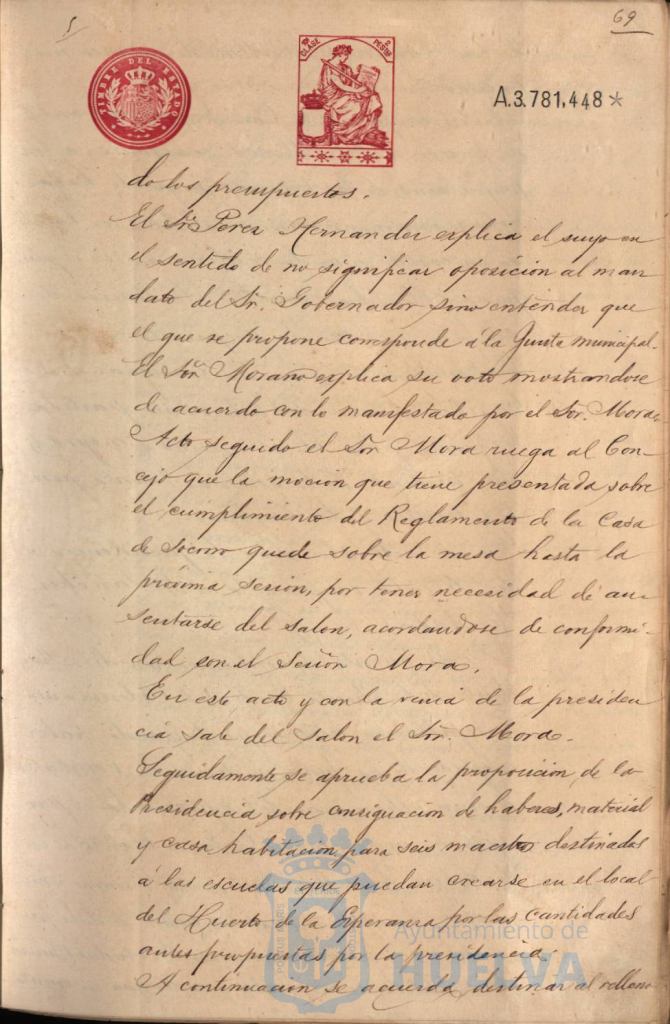 5
69
TIMBRE DEL ESTADO
10ª CLASE
2 PESTAS
A.3.781,448*
do los presupuestos.
El Sr. Perez Hernandez explica el suyo en
el sentido de no significar oposición al man
dato del Sr. Gobernador sino entender que
el que se propone corresponde á la Junta municipal.
El Sor. Moraño explica su voto mostrandose
de acuerdo con lo manifestado por el Sor. Mora.
Acto seguido el Sor. Mora ruega al Con-
cejo que la moción que tiene presentada sobre
el cumplimiento del Reglamento de la Casa
de Socorro quede sobre la mesa hasta la
próxima sesion, por tener necesidad de au-
sentarse del salon, acordandose de conformi-
dad con el Señor Mora.
En este acto y con la venia de la presiden
cia sale del salon el Sor. Mora.
Seguidamente se aprueba la proposicion de la
Presidencia sobre consignación de haberes, material
y casa habitación para seis maestros destinados
á las escuelas que puedan crearse en el local
del Huerto de la Esperanza por las cantidades
antes propuestas por la presidencia.
A continuacion se acuerda destinar al relleno
Ayuntamiento de
HUELVA